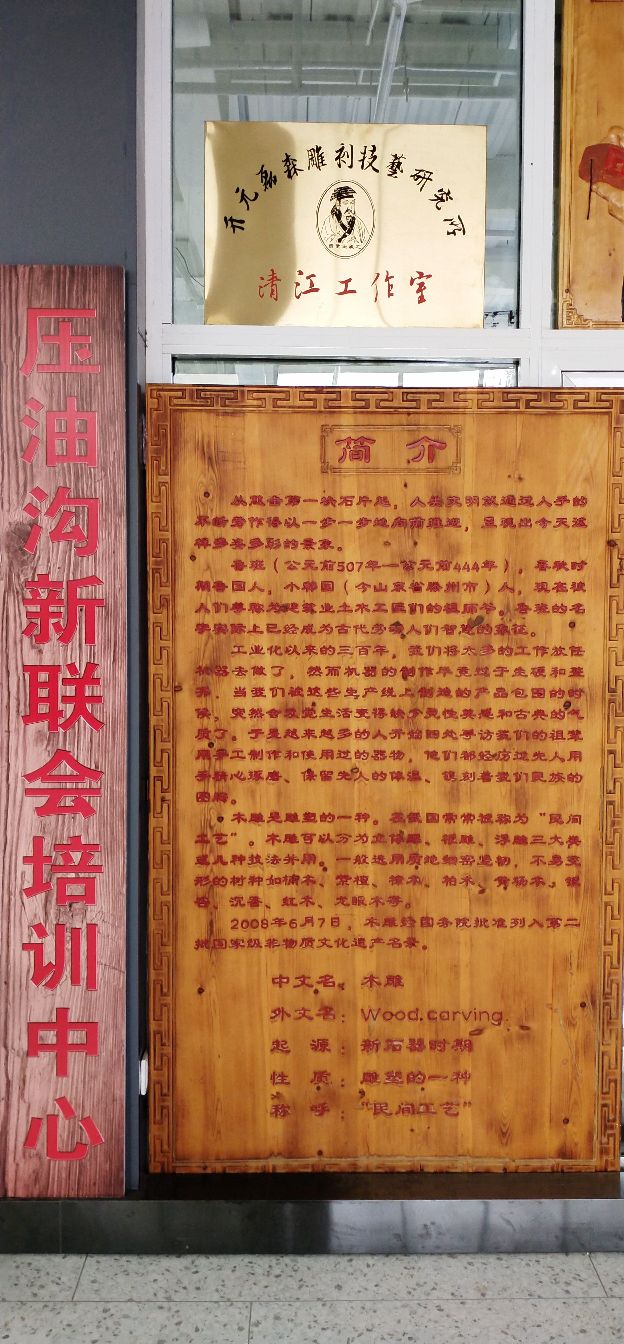 开元磊森雕刻技藝研究所
清江工作室
压油沟新联会培训中心
简 介
从敲击第一块石片起，人类文明就通过人手的
不断劳作得以一步一步地向前推进，呈现出今天这
样多姿多彩的景象。
鲁班（公元前507年—公元前444年），春秋时
期鲁国人，小邾国（今山东省滕州市）人，现在被
人们尊称为建筑业土木工匠们的祖师爷。鲁班的名
字实际上已经成为古代劳动人们智慧的象征。
工业化以来的三百年，我们将太多的工作放任
机器去做了，然而机器的制作毕竟过于生硬和整
齐，当我们被这些生产线上制造的产品包围的时
候，突然会发觉生活变得缺少灵性美感和古典的气
质了。于是越来越多的人开始回处寻访我们的祖辈
用手工制作和使用过的器物，他们都经历过先人用
手精心琢磨、保留先人的体温、镌刻着我们民族的
图腾。
木雕是雕塑的一种。在我国常常被称为“民间
工艺”。木雕可以分为立体雕、根雕、浮雕三大类
或几种技法并用。一般选用质地细密坚韧，不易变
形的树种如楠木、紫檀、樟木、柏木、黄杨木、银
杏、沉香、红木、龙眼木等。
2008年6月7日，木雕经国务院批准列入第二
批国家级非物质文化遗产名录。
中文名：木雕
外文名：Wood carving
起 源：新石器时期
性 质：雕塑的一种
称 呼：“民间工艺”